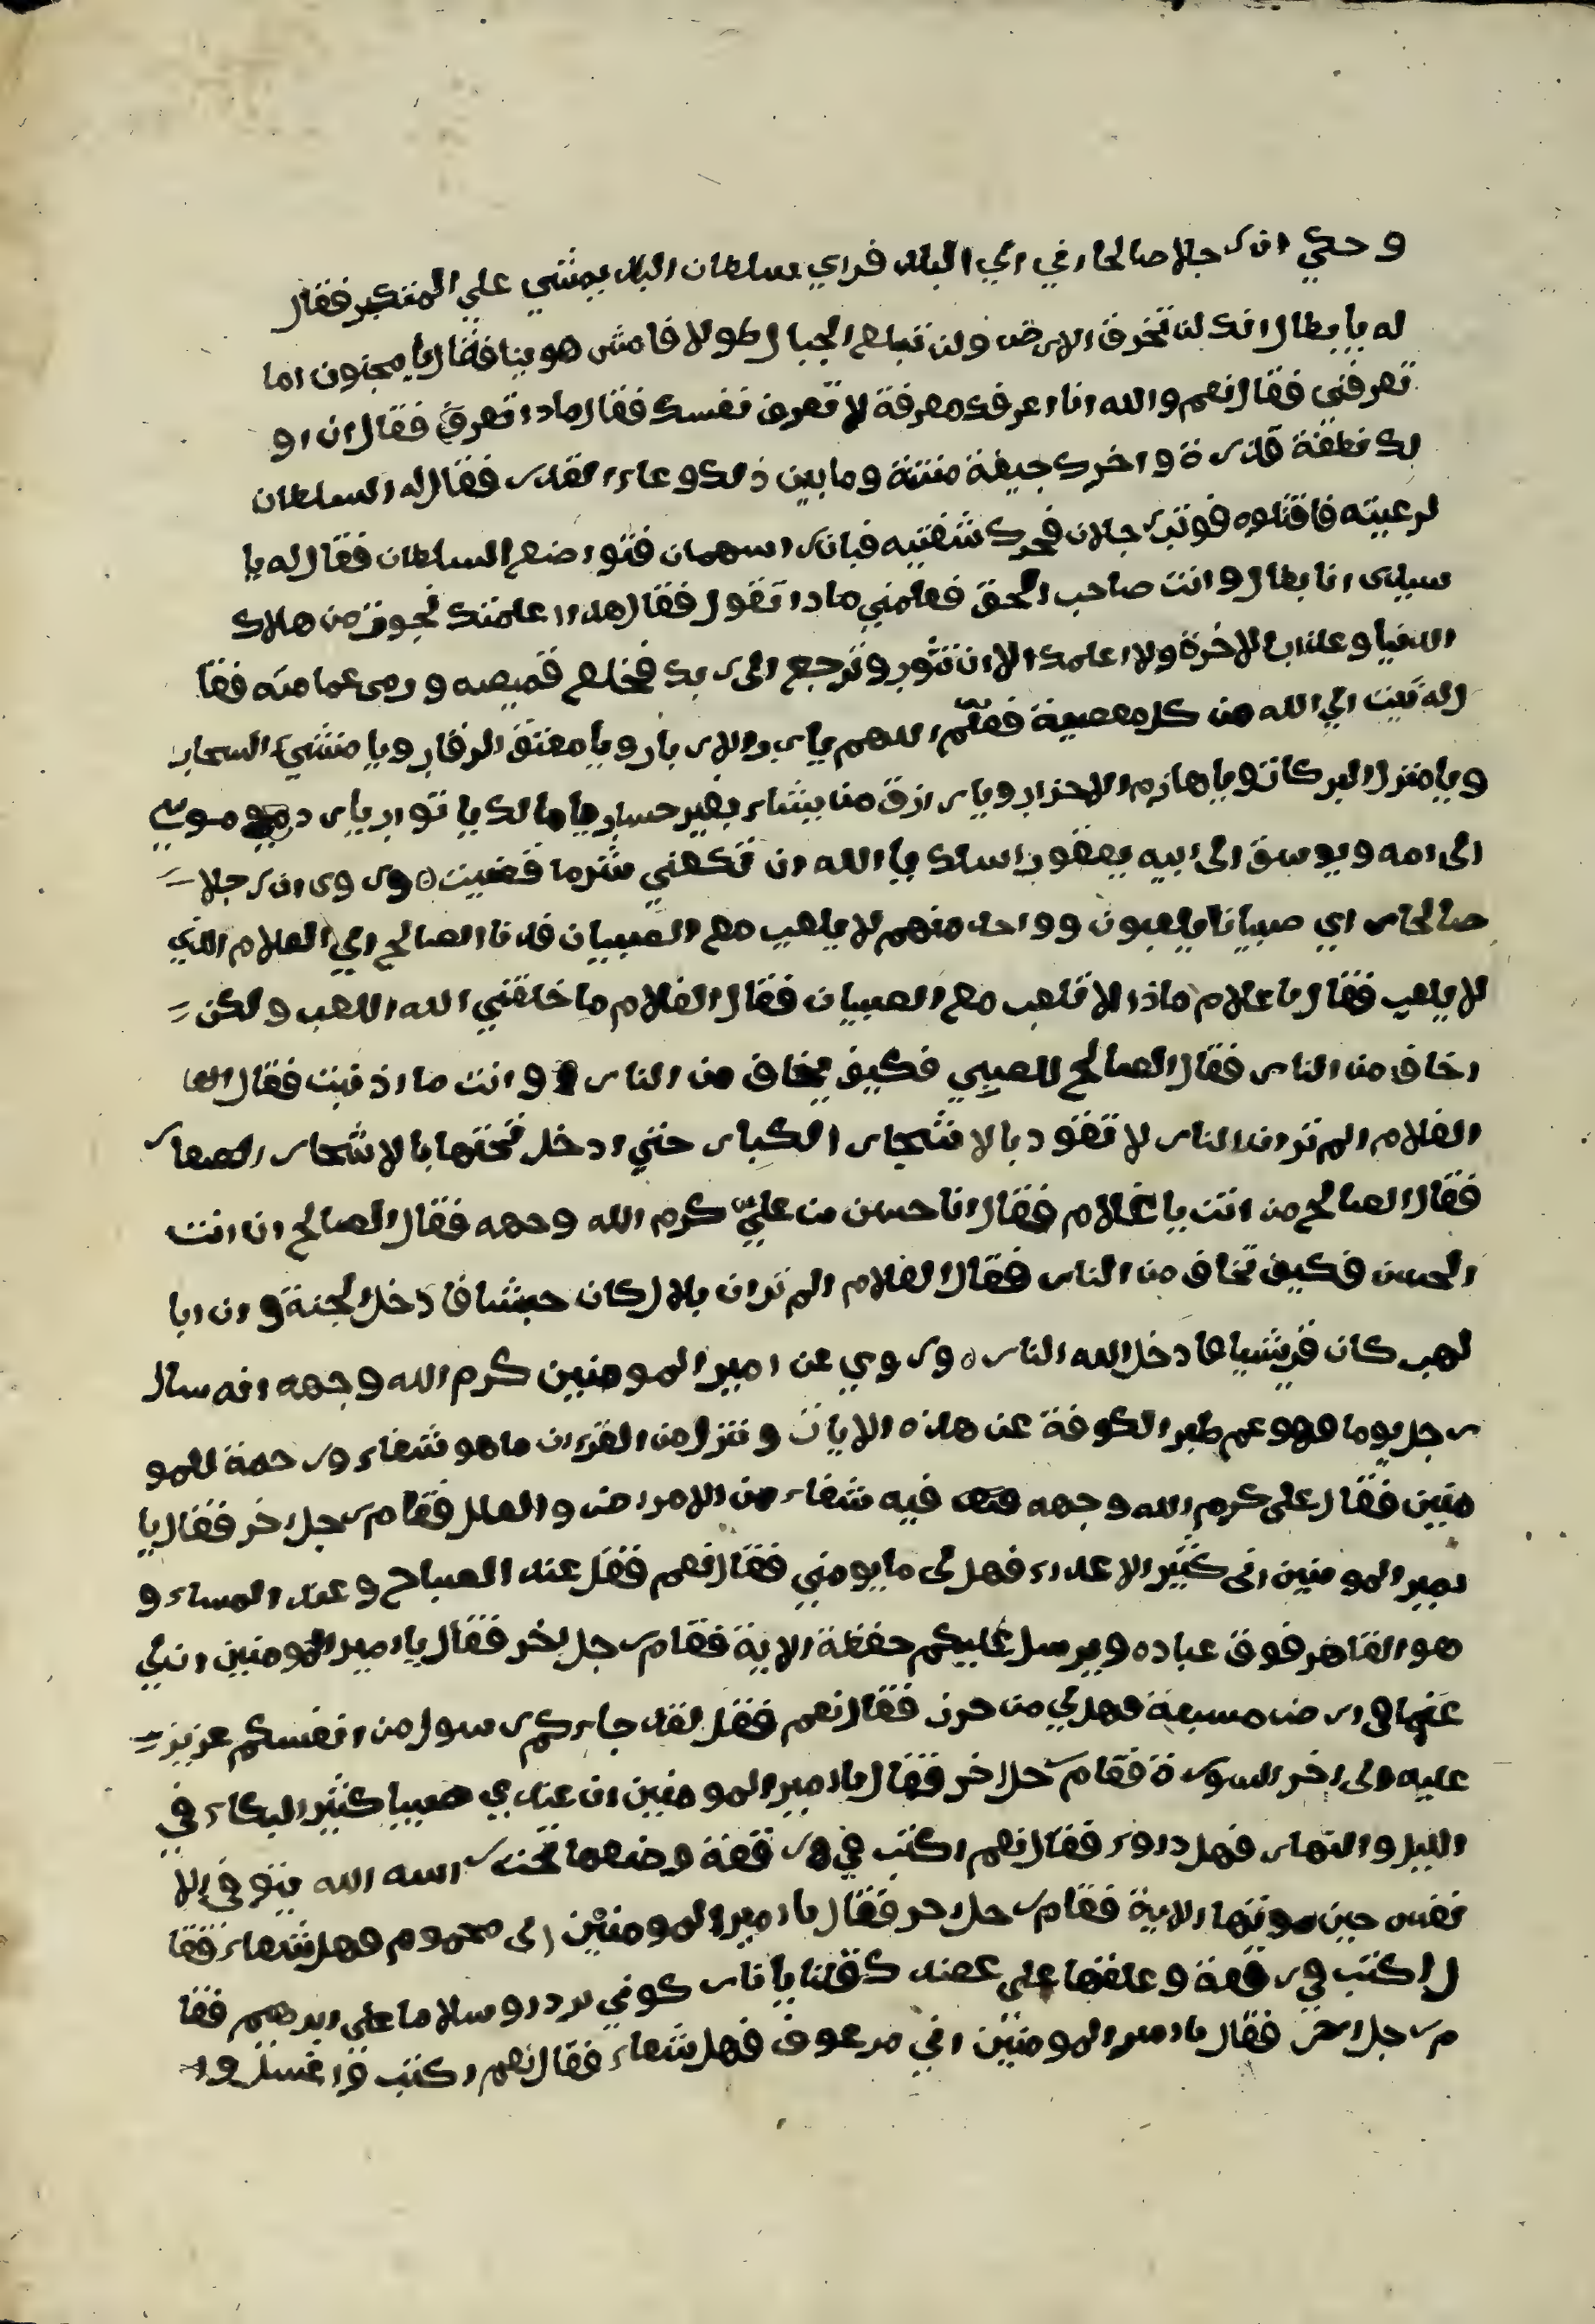 وحكي ان رجلا صالحا رفي الي البلد فراي سلطان البلد يمشي علي المتكبر فقال
له يا بطال انك لن تخرق الارض ولن تبلغ الجبال طولا فامش هوينا فقال يا مجنون اما
تعرفني فقال نعم والله انا اعرفك معرفة لا تعرف نفسك فقال مادا تعرف فقال ان او
لك نطفة قذرة واخرك جيفة منتنة وما بين ذلك وعاء القذر فقال له السلطان
لرعيته فاقتلوه فوتب رجلان فحرك شفتيه فبانر اسهمان فتواضع السلطان فقال له يا
سيدى انا بطال وانت صاحب الحق فعلمني مادا تقول فقال هدا اعلمتك نجوت من هلاك
الدنيا وعذاب الاخرة ولا اعلمك الا ان تثوب وترجع الى ربك فخلع قميصه ورمى عمامته فقا
ل له تبت الي الله من كل معصية فعلّم اللهم يا رب الارباب ويا معتق الرقاب ويا منشيء السحاب
ويا منزل البركات ويا هازم الاحزاب ويا رازق من يشاء بغير حساب يا مالك يا تواب يا راد موسي
الى امه ويوسف الى ابيه يعقوب اسلك يا الله ان تكفني شر ما قضيت وروى ان رجلا
صالحا راي صبيانا يلعبون وواحد منهم لا يلعب مع الصبيان فدنا الصالح الي الغلام الذي
لا يلعب فقال يا غلام ماذا لا تلعب مع الصبيان فقال الغلام ما خلقني الله اللعب ولكن
اخاف من النار فقال الصالح للصبي فكيف يخاف من النار وانت ما اذنبت فقال الها
الغلام الم تر ان النار لا تقود بالاشجار الكبار حتي ادخل تحتها بالاشجار الصغار
فقال الصالح من انت يا غلام فقال انا حسن من علي كرم الله وجهه فقال الصالح ان انت
الحسن فكيف تخاف من النار فقال الغلام الم تر ان بلال كان حبشا فادخل الجنة وان ابا
لهب كان قريشيا فادخل الله النار وروي عن امير المومنين كرم الله وجهه انه سال
رجل يوما فهو عم طبر الكوفة عن هاذه الايات وننزل من القران ما هو شفاء ورحمة للمو
منين فقال على كرم الله وجهه فيه شفاء من الامراض والعلل فقام رجل اخر فقال يا
امير المومنين انى كثير الاعداء فهل لى ما يومني فقال نعم فقل عند الصباح وعند المساء و
هو القاهر فوق عباده ويرسل عليكم حفظة الاية فقام رجل اخر فقال يا امير المومنين ان لي
غنما في ارض مسبعة فهل لي من حرز فقال نعم فقل لقد جاءكم رسول من انفسكم عزيز
عليه الى اخر السورة فقام رجل اخر فقال يا امير المومنين ان عندي صبيا كثير البكاء في
الليل والنهار فهل دواء فقال نعم اكتب في رقعة وضعها تحت راسه الله يتوفى الا
نفس حين موتها الاية فقام رجل اخر فقال يا امير المومنين انى محموم فهل شفاء فقا
ل اكتب في رقعة وعلقها على عضد ك قلنا يا نار كوني بردا وسلاما على ابرهيم فقا
م رجل اخر فقال يا امير المومنين اني مرعوف فهل شفاء فقال نعم اكتب واغسل وا